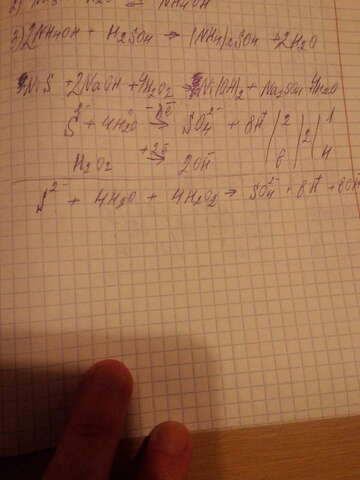 3) 2NH4OH + H2SO4 → (NH4)2SO4 + 2H2O
NiS + 2NaOH + 4H2O2 → Ni(OH)2 + Na2SO4 + 4H2O
S2- + 4H2O -8ē → SO4 2- + 8H+ | 2 | 2 | 1
H2O2 +2ē → 2OH- | 8 | 4
S2- + 4H2O + 4H2O2 → SO4 2- + 8H+ + 8OH